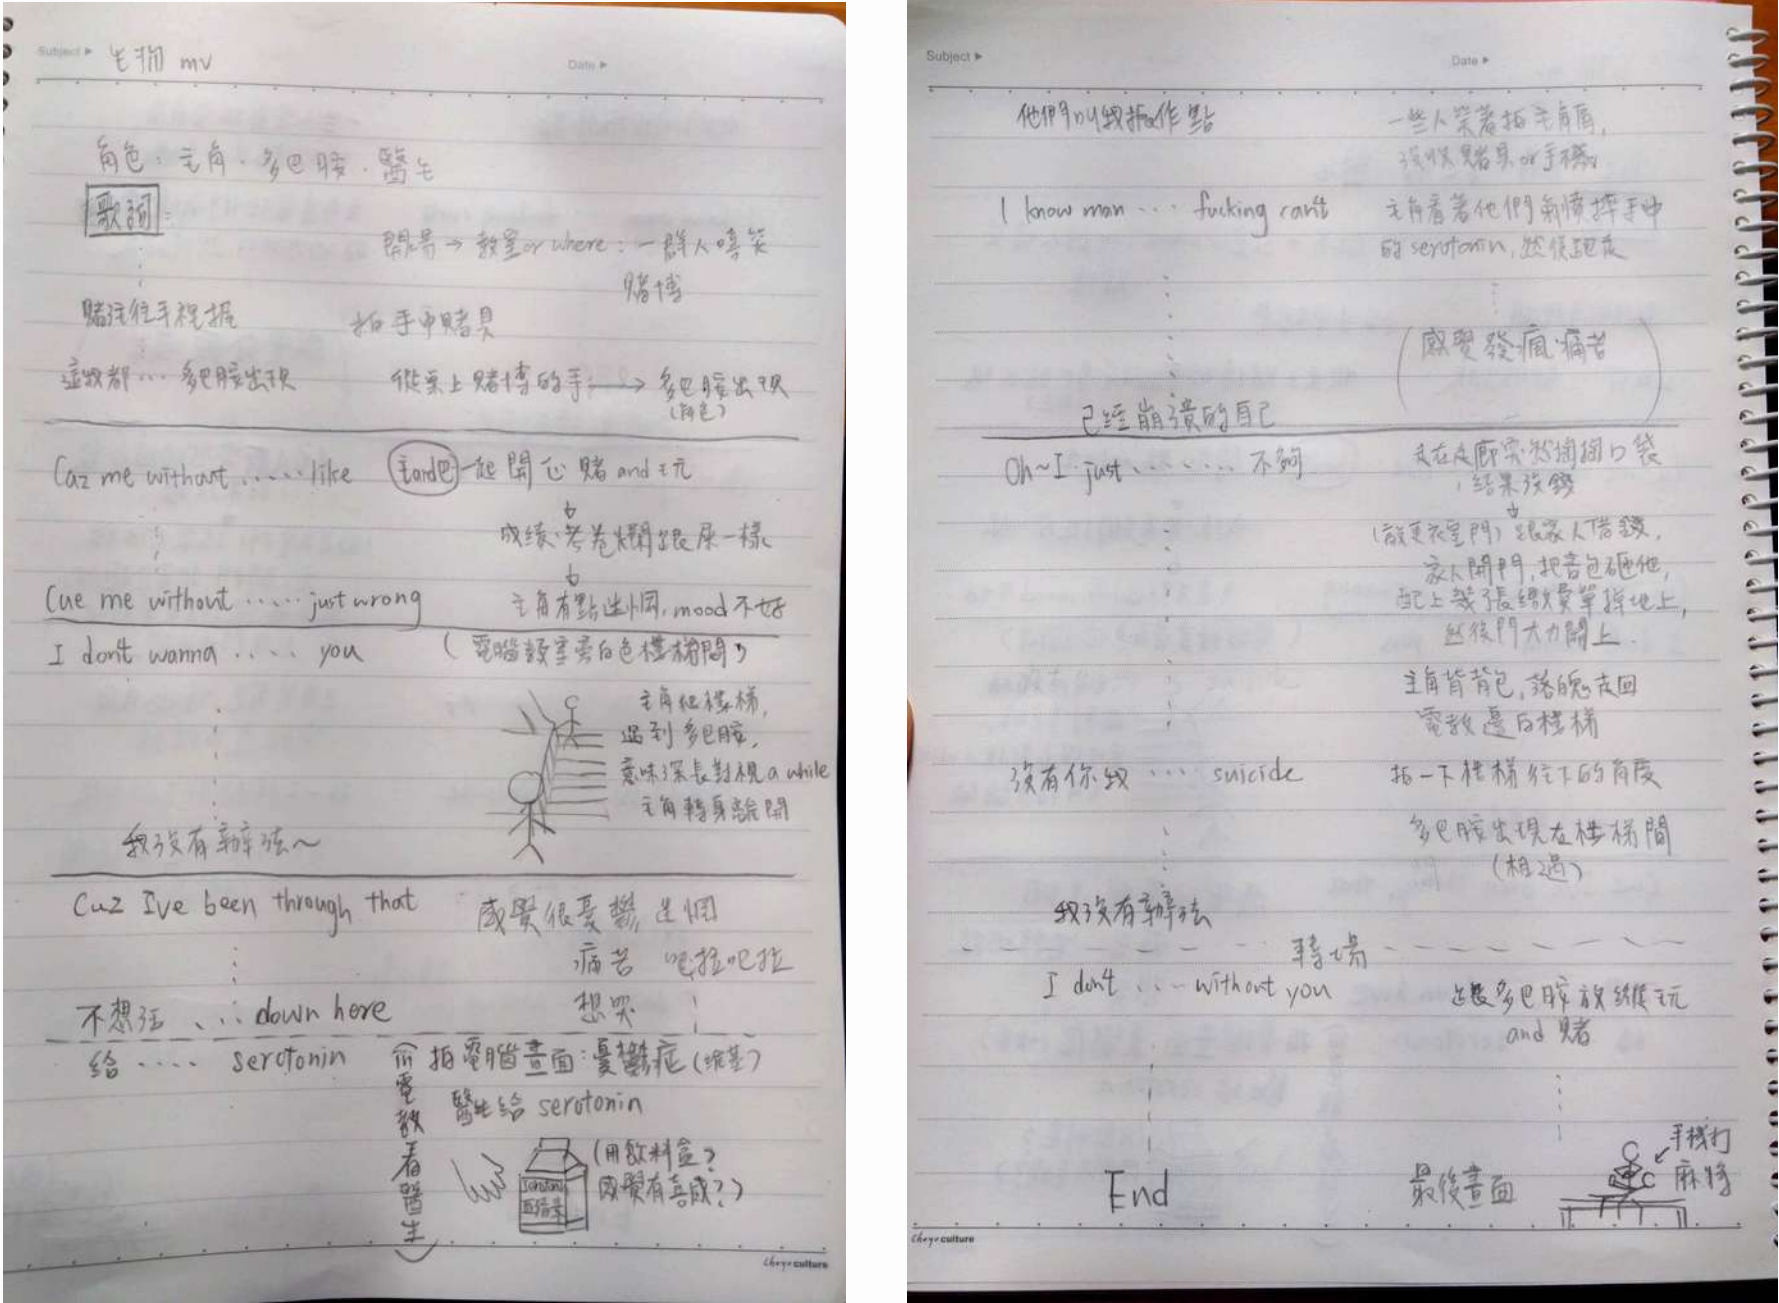 Subject ▶ 生物 mv
Date ▶
角色：主角．多巴胺．醫生
歌詞：
開場 → 教室 or where：一群人嘻笑
賭博
賭注往手裡握 拍手中賭具
這牧都 ‥‥ 多巴胺出現 從桌上賭博的手 → 多巴胺出現
(角色)
Caz me without ..... like 主and巴 一起開心賭 and 玩
成績．考卷爛跟屎一樣
Cue me without ..... just wrong 主角有點迷惘, mood 不好
I don't wanna .... you (電腦教室旁白色樓梯間)
主角爬樓梯,
遇到多巴胺,
意味深長對視 a while
主角轉身離開
我沒有辦法～
Cuz I've been through that 感覺很憂鬱 迷惘
痛苦 吧拉吧拉
想哭
不想活 ... down here
給 .... serotonin (in電教看醫生) 拍電腦畫面：憂鬱症 (維基)
醫生給 serotonin
(用飲料盒?
感覺有喜感?)
Choyo culture
Subject ▶
Date ▶
他們叫我振作點 一些人笑著拍主角肩,
沒收賭具 or 手機
I know man ... fucking can't 主角看著他們氣憤摔手中
的 serotonin, 然後跑走
(感覺發瘋．痛苦)
已經崩潰的自己
Oh~ I just ....... 不夠 走在走廊突然掏掏口袋
, 結果沒錢
(敲更衣室門) 跟家人借錢,
家人開門, 把書包砸他,
配上幾張繳費單掉地上,
然後門大力關上.
主角背背包, 落魄走回
電教邊白樓梯
沒有你我 ... suicide 拍一下樓梯往下的角度
多巴胺出現在樓梯間
(相遇)
我沒有辦法
轉場
I don't .... without you 跟多巴胺放縱玩
and 賭
End 最後畫面
手機打
麻將
Choyo culture